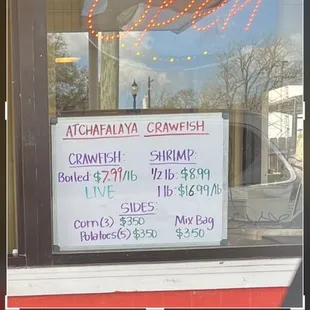 Open
ATCHAFALAYA CRAWFISH
CRAWFISH: SHRIMP:
Boiled: $7.99/lb 1/2 lb: $8.99
LIVE 1 lb: $16.99/lb
SIDES
Corn(3) $3.50 Mix Bag
Potatoes(5) $3.50 $3.50